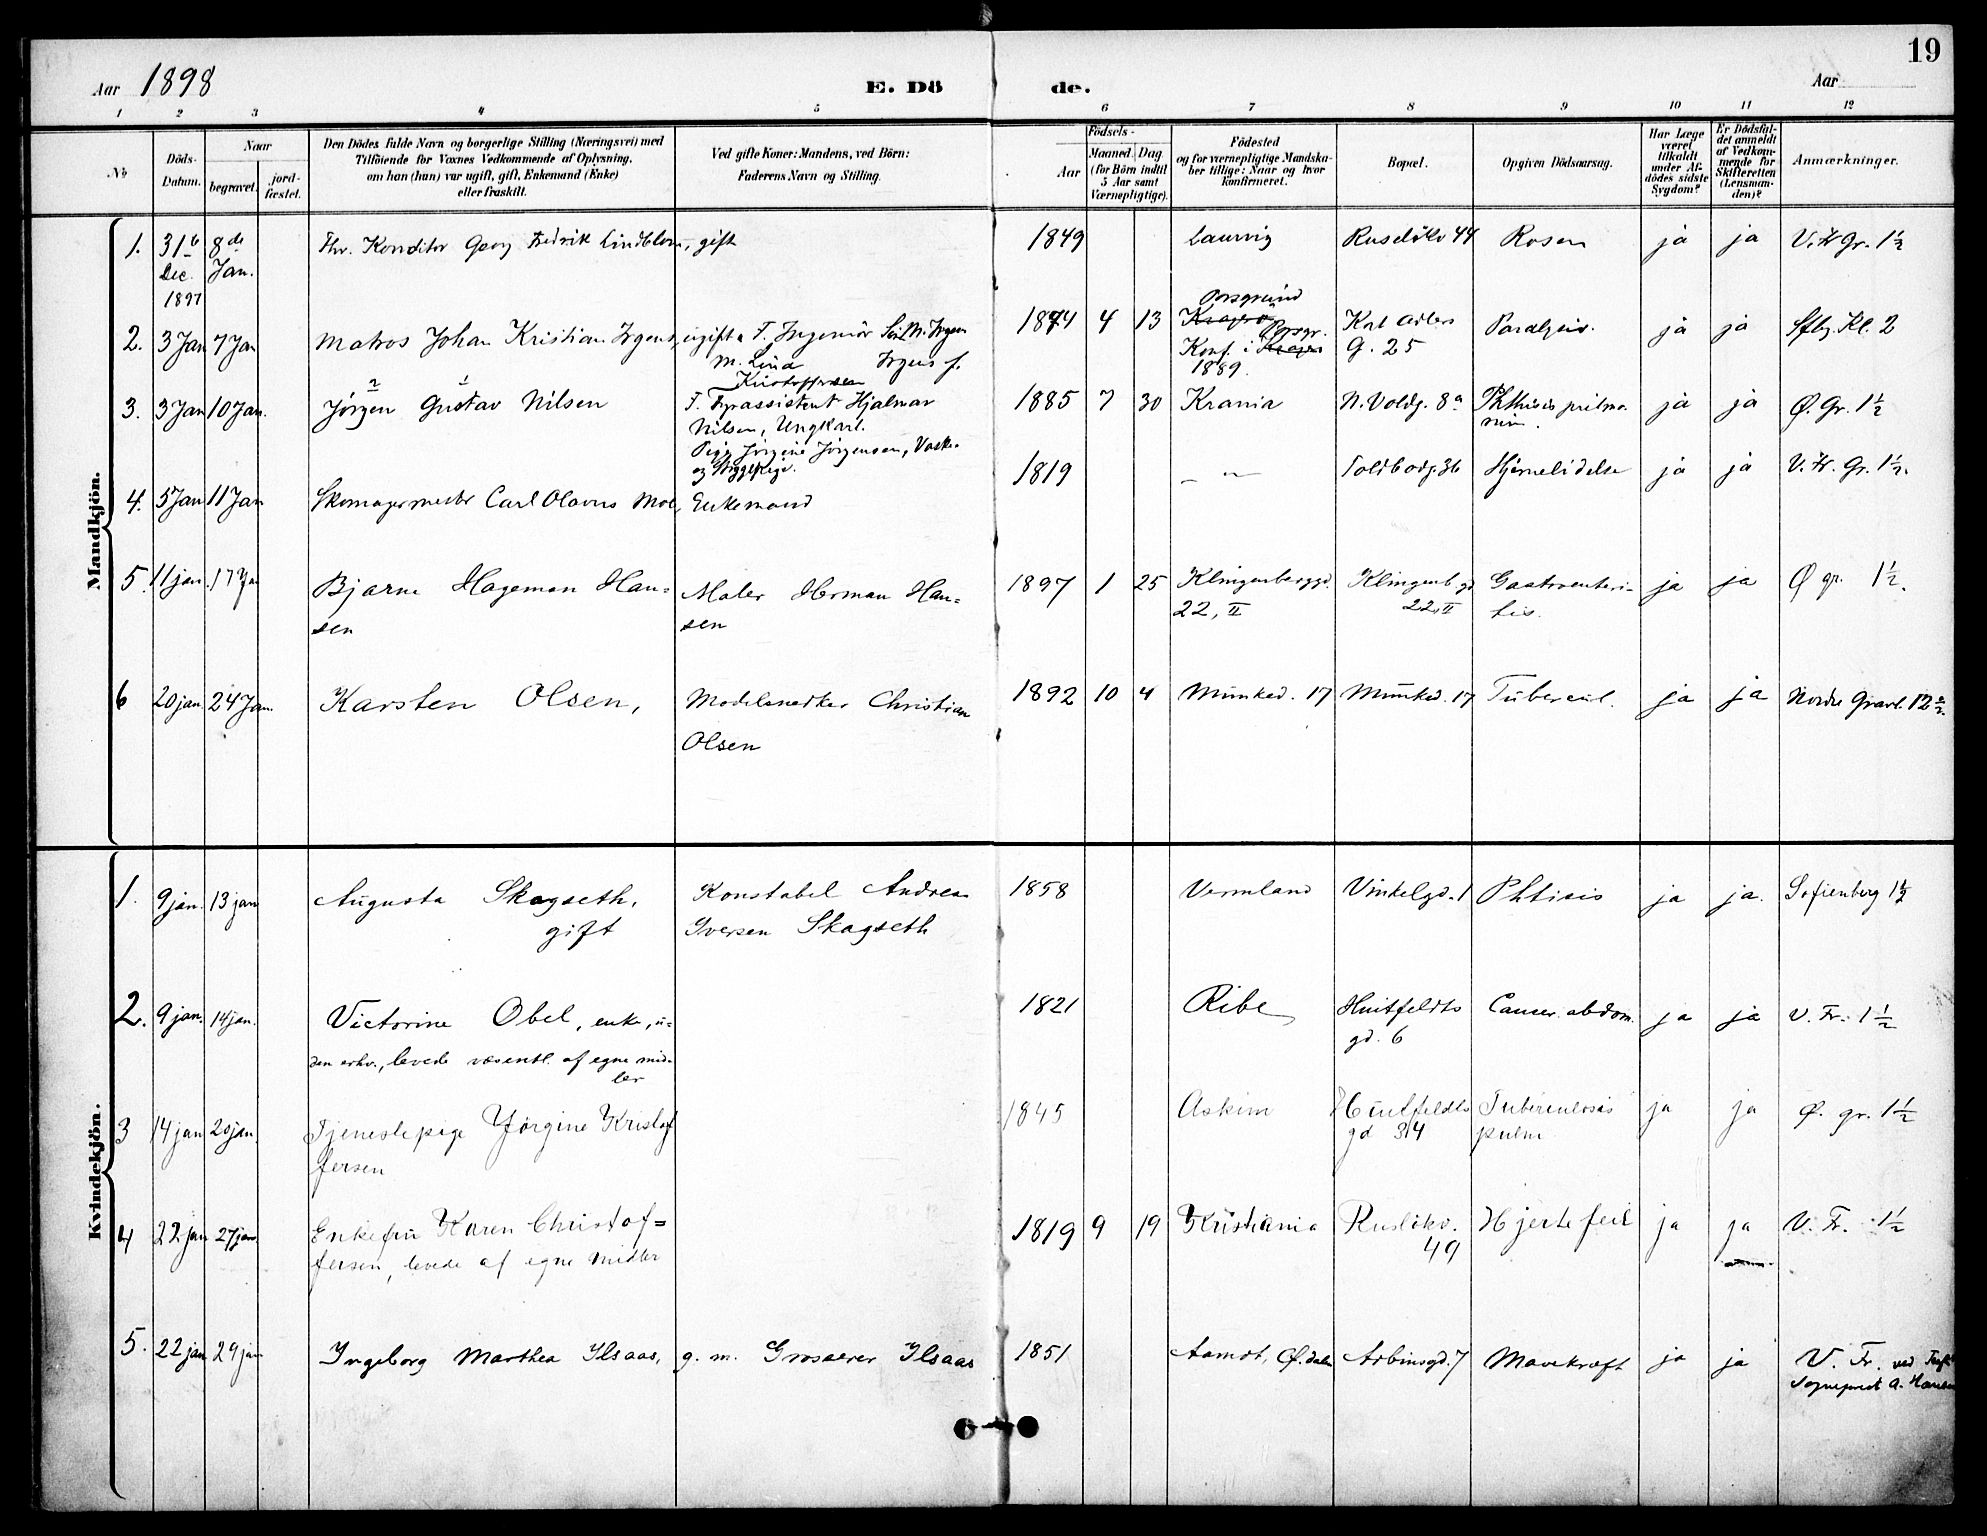 19
Aar 1898
E. Dö de.
Aar
1 2 3 4 5 6 7 8 9 10 11 12
No
Döds-Datum.
Naar
begravet.
jord-fæstet.
Den Dödes fulde Navn og borgerlige Stilling (Næringsvei) med
Tilföiende for Voxnes Vedkommende af Oplysning,
om han (hun) var ugift, gift, Enkemand (Enke)
eller fraskilt.
Ved gifte Koner: Mandens, ved Börn:
Faderens Navn og Stilling.
Födsels-
Aar
Maaned. Dag
(for Börn indtil
5 Aar samt
Værnepligtige).
Födested
og for værnepligtige Mandska-
ber tillige: Naar og hvor
konfirmeret.
Bopæl.
Opgiven Dödsaarsag.
Har Læge
været
tilkaldt
under Af-
dödes sidste
Sygdom?
Er Dödsfal-
det anmeldt
af Vedkom-
mende for
Skifteretten
(Lensman-
den)?
Anmærkninger.
Mandkjön.
1. 31 8de Konditor Georg Fredrik Lindblom, gift 1849 Laurvig Ruselökv 44 Rosen ja ja V. Fr Gr. 1½
Dec. Jan.
1897
Porsgrund
2. 3 Jan 7 Jan Matros Johan Kristian Irgens, ugift F. Ingeniör Irgens 1874 4 13 Kragerö Kat Adlers Paralysis. ja ja Kl. 2
M. Lina Irgens f. Konf. i Kragerö Porsgr. G. 25
Kristoffersen 1889.
3. 3 Jan 10 Jan. Jörgen Gustav Nilsen F. Fyrassistent Hjalmar 1885 7 30 Krania N. Voldg. 8a Phthisis pulmo- ja ja Ø. Gr. 1½
Nilsen, Ungkarl. num.
Pige Jörgine Jörgensen, Vaske-
og Bryggepige.
4. 5 Jan 11 Jan Skomagermester Carl Olavus Moe, Enkemand 1819 - " - Toldbodg. 36 Hjernelidelse ja ja V. Fr. Gr. 1½.
5. 11 jan. 17 Jan Bjarne Hageman Han- Maler Herman Han- 1897 1 25 Klingenberggd. Klingenb. gd Gastroenteri- ja ja Ø gr. 1½.
sen sen 22, II 22, II tis.
6 20 jan 24 Jan. Karsten Olsen, Modelsnedker Christian 1892 10 4 Munked. 17 Munked. 17 Tubercul. ja ja Nordre Gravl. 12½.
Olsen
Kvindekjön.
1. 9 jan. 13 jan Augusta Skagseth, Konstabel Andreas 1858 Vermland Vinkelgd. 1 Phtisis ja ja. Sofienberg 1½
gift Iversen Skagseth
2. 9 jan. 14 jan. Victorine Obel, enke, u- 1821 Ribe Huitfeldts Cancer abdom. ja ja V. Fr. 1½
den erhv., levede væsentl. af egne mid- gd. 6
ler
3 14 jan 20 jan. Tjenestepige Jörgine Kristof 1845 Askim Huitfeldts Tuberculosis ja ja Ø. gr. 1½
fersen gd 34 pulm
4 22 jan 27 jan. Enkefru Karen Christof- 1819 9 19 Kristiania Ruslökv. Hjertefeil ja ja V. Fr. 1½
fersen, levede af egne midler 49
5. 22 jan 29 jan Ingeborg Marthea Ilsaas, g. m. Grosserer Ilsaas 1851 Aamot, Ø. dalen Arbinsgd. 7 Mavekræft ja ja V. Fr. ved
Sogneprest A. Hansen